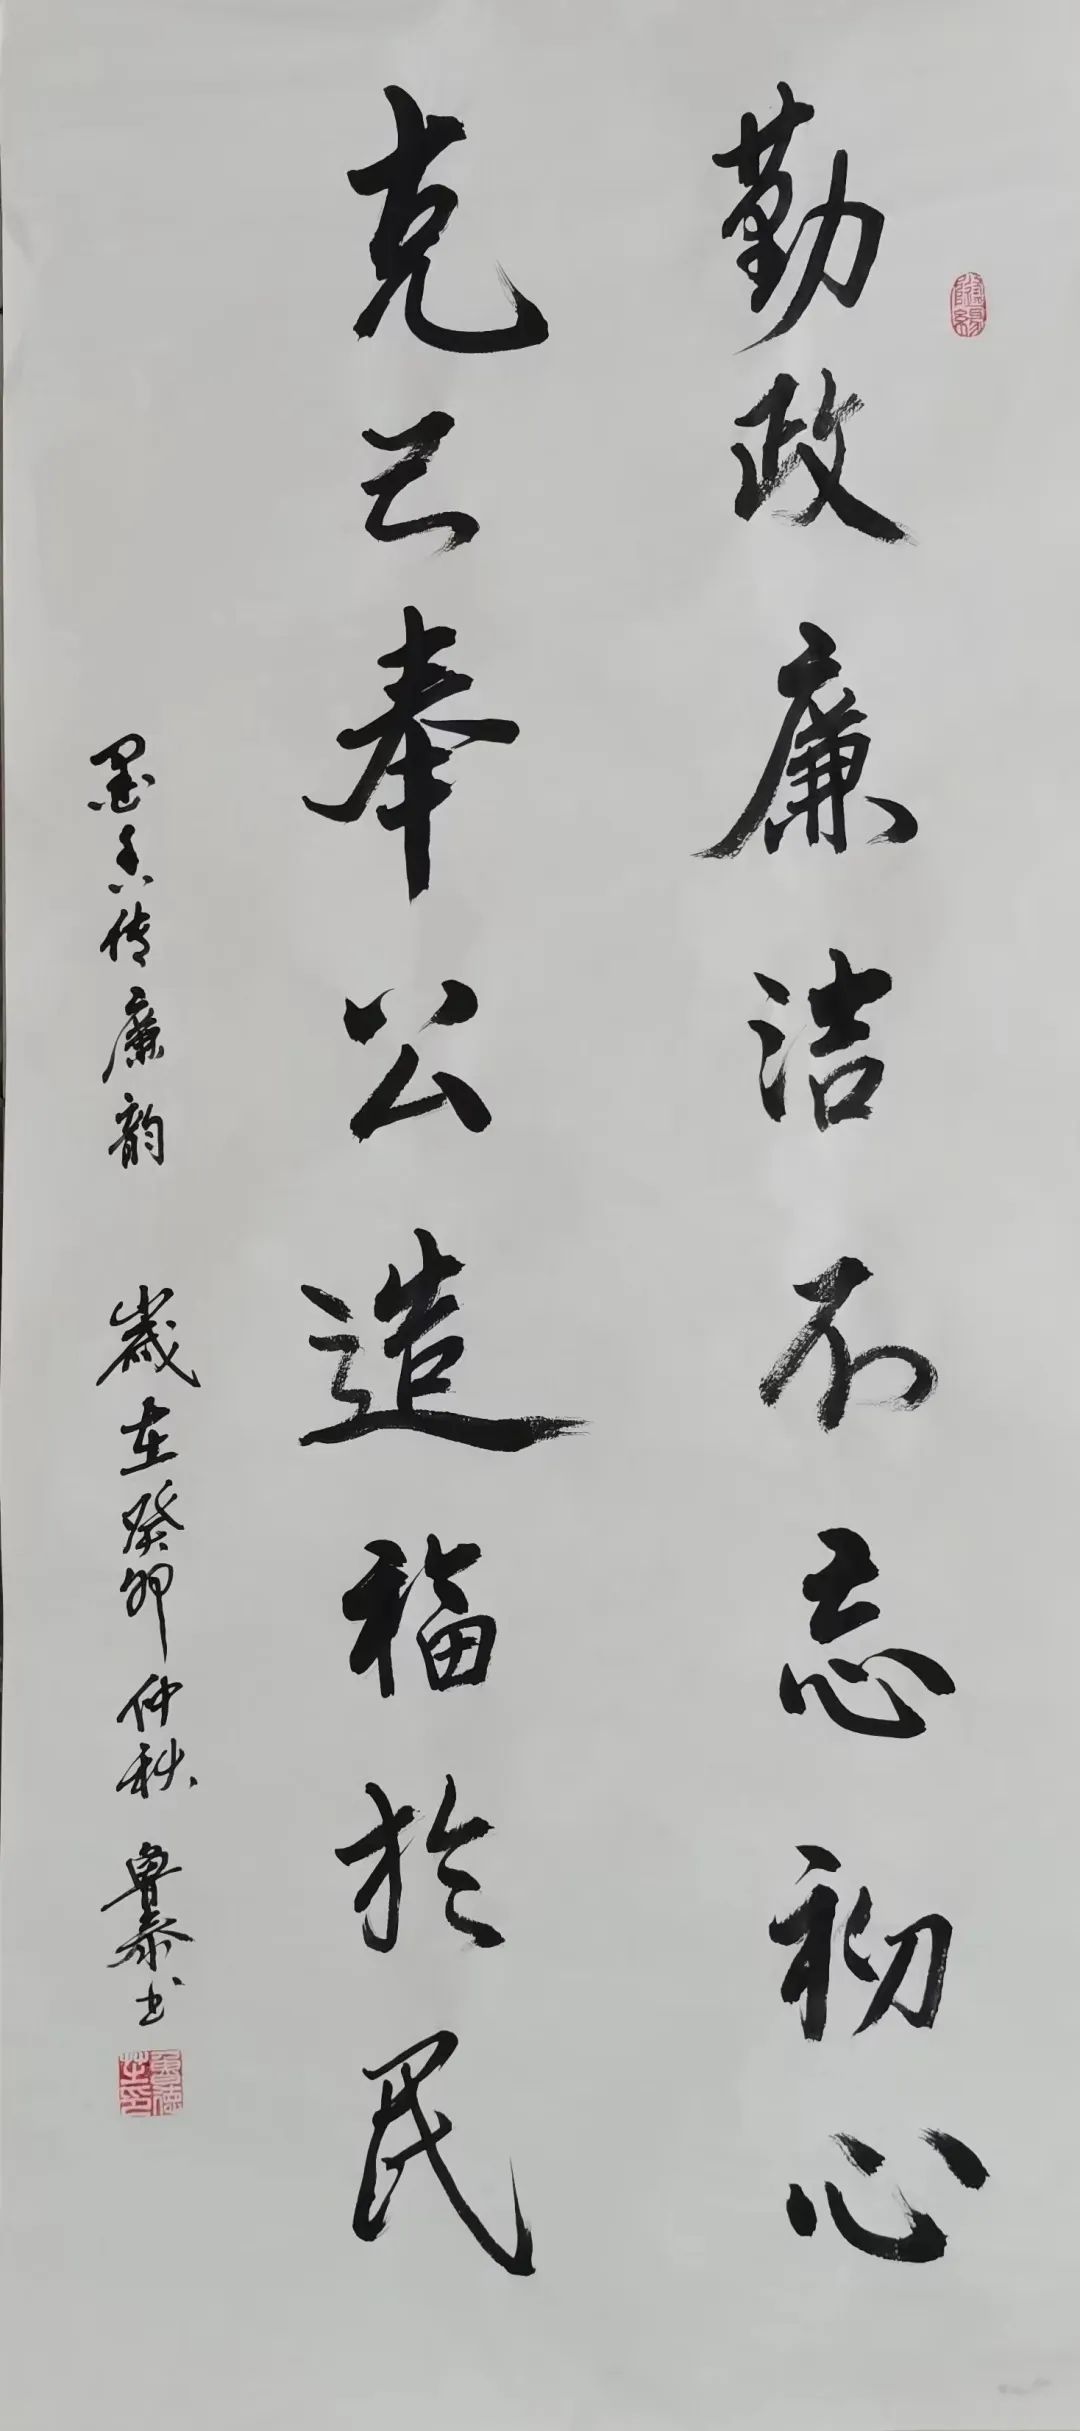 勤政廉洁不忘初心
克己奉公造福於民
墨香传廉韵 歲在癸卯仲秋 鲁泰书